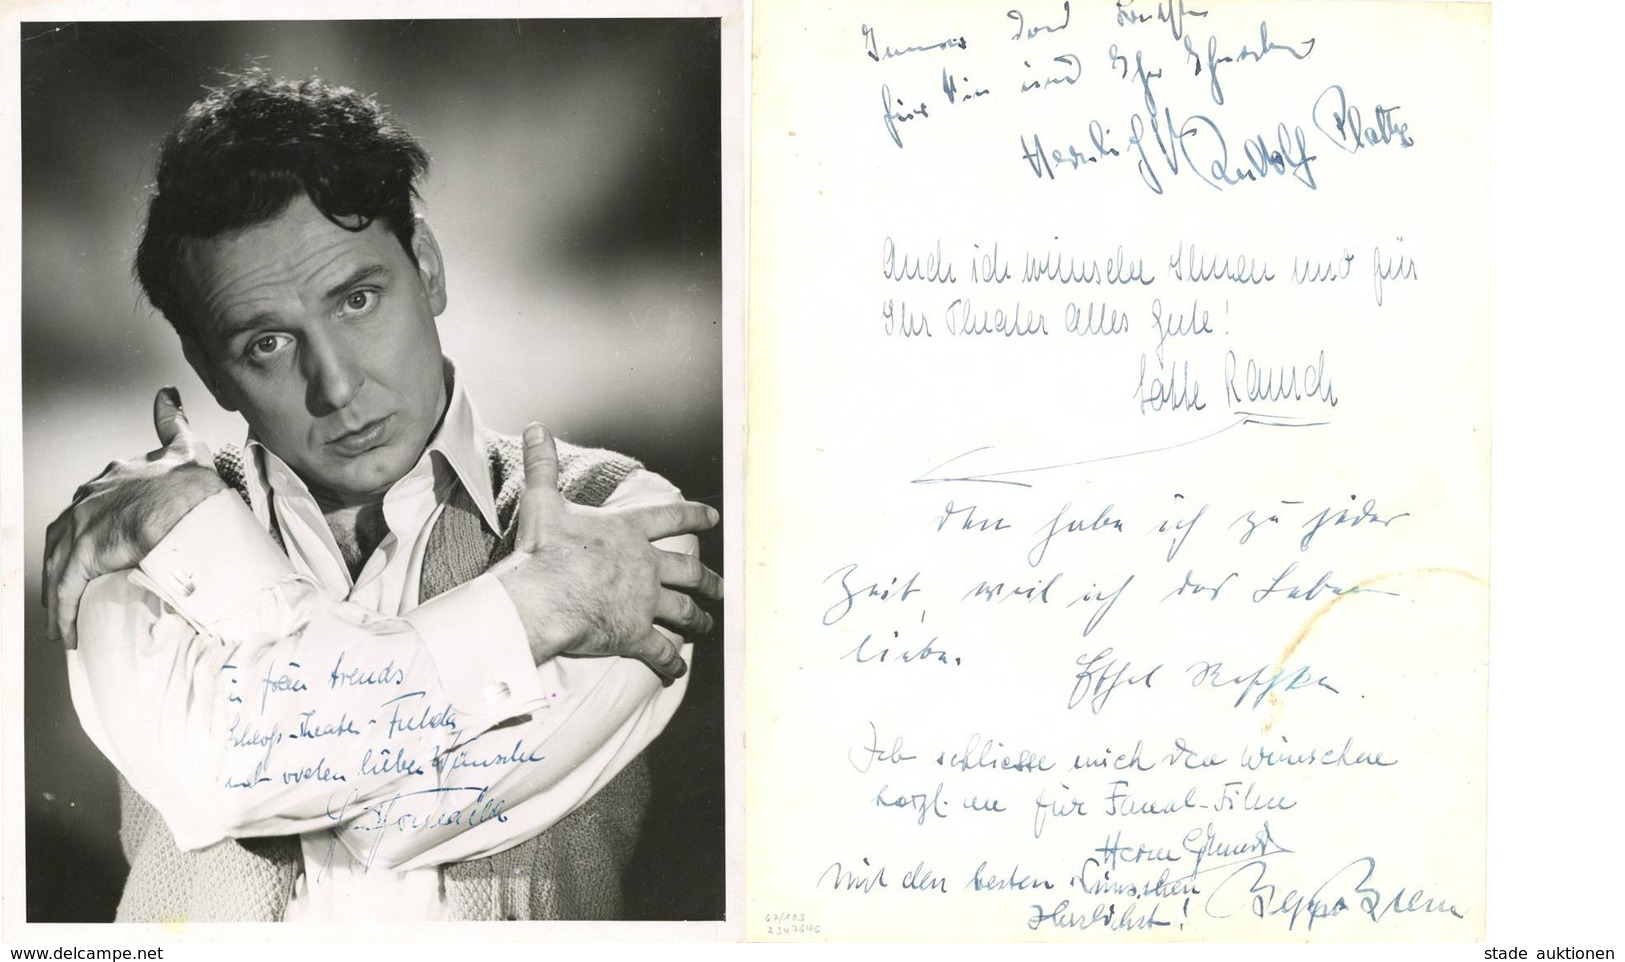 frau Arends
Schloß-Theater-Fulda
mit vielen lieben Wünschen
für Sie und Ihr
Herzlichst Rudolf Platte
Auch ich wünsche Ihnen und für
Ihr Theater alles Gute!
Lotte Rausch
den habe ich zu jeder
Zeit, weil ich das Leben
liebe.
Ethel Reschke
Ich schliesse mich den Wünschen
herzl. an für Fanal-Film
Herm
Mit den besten Wünschen
Herzlichst! Beppo Brem
67/103
2347646
stade auktionen